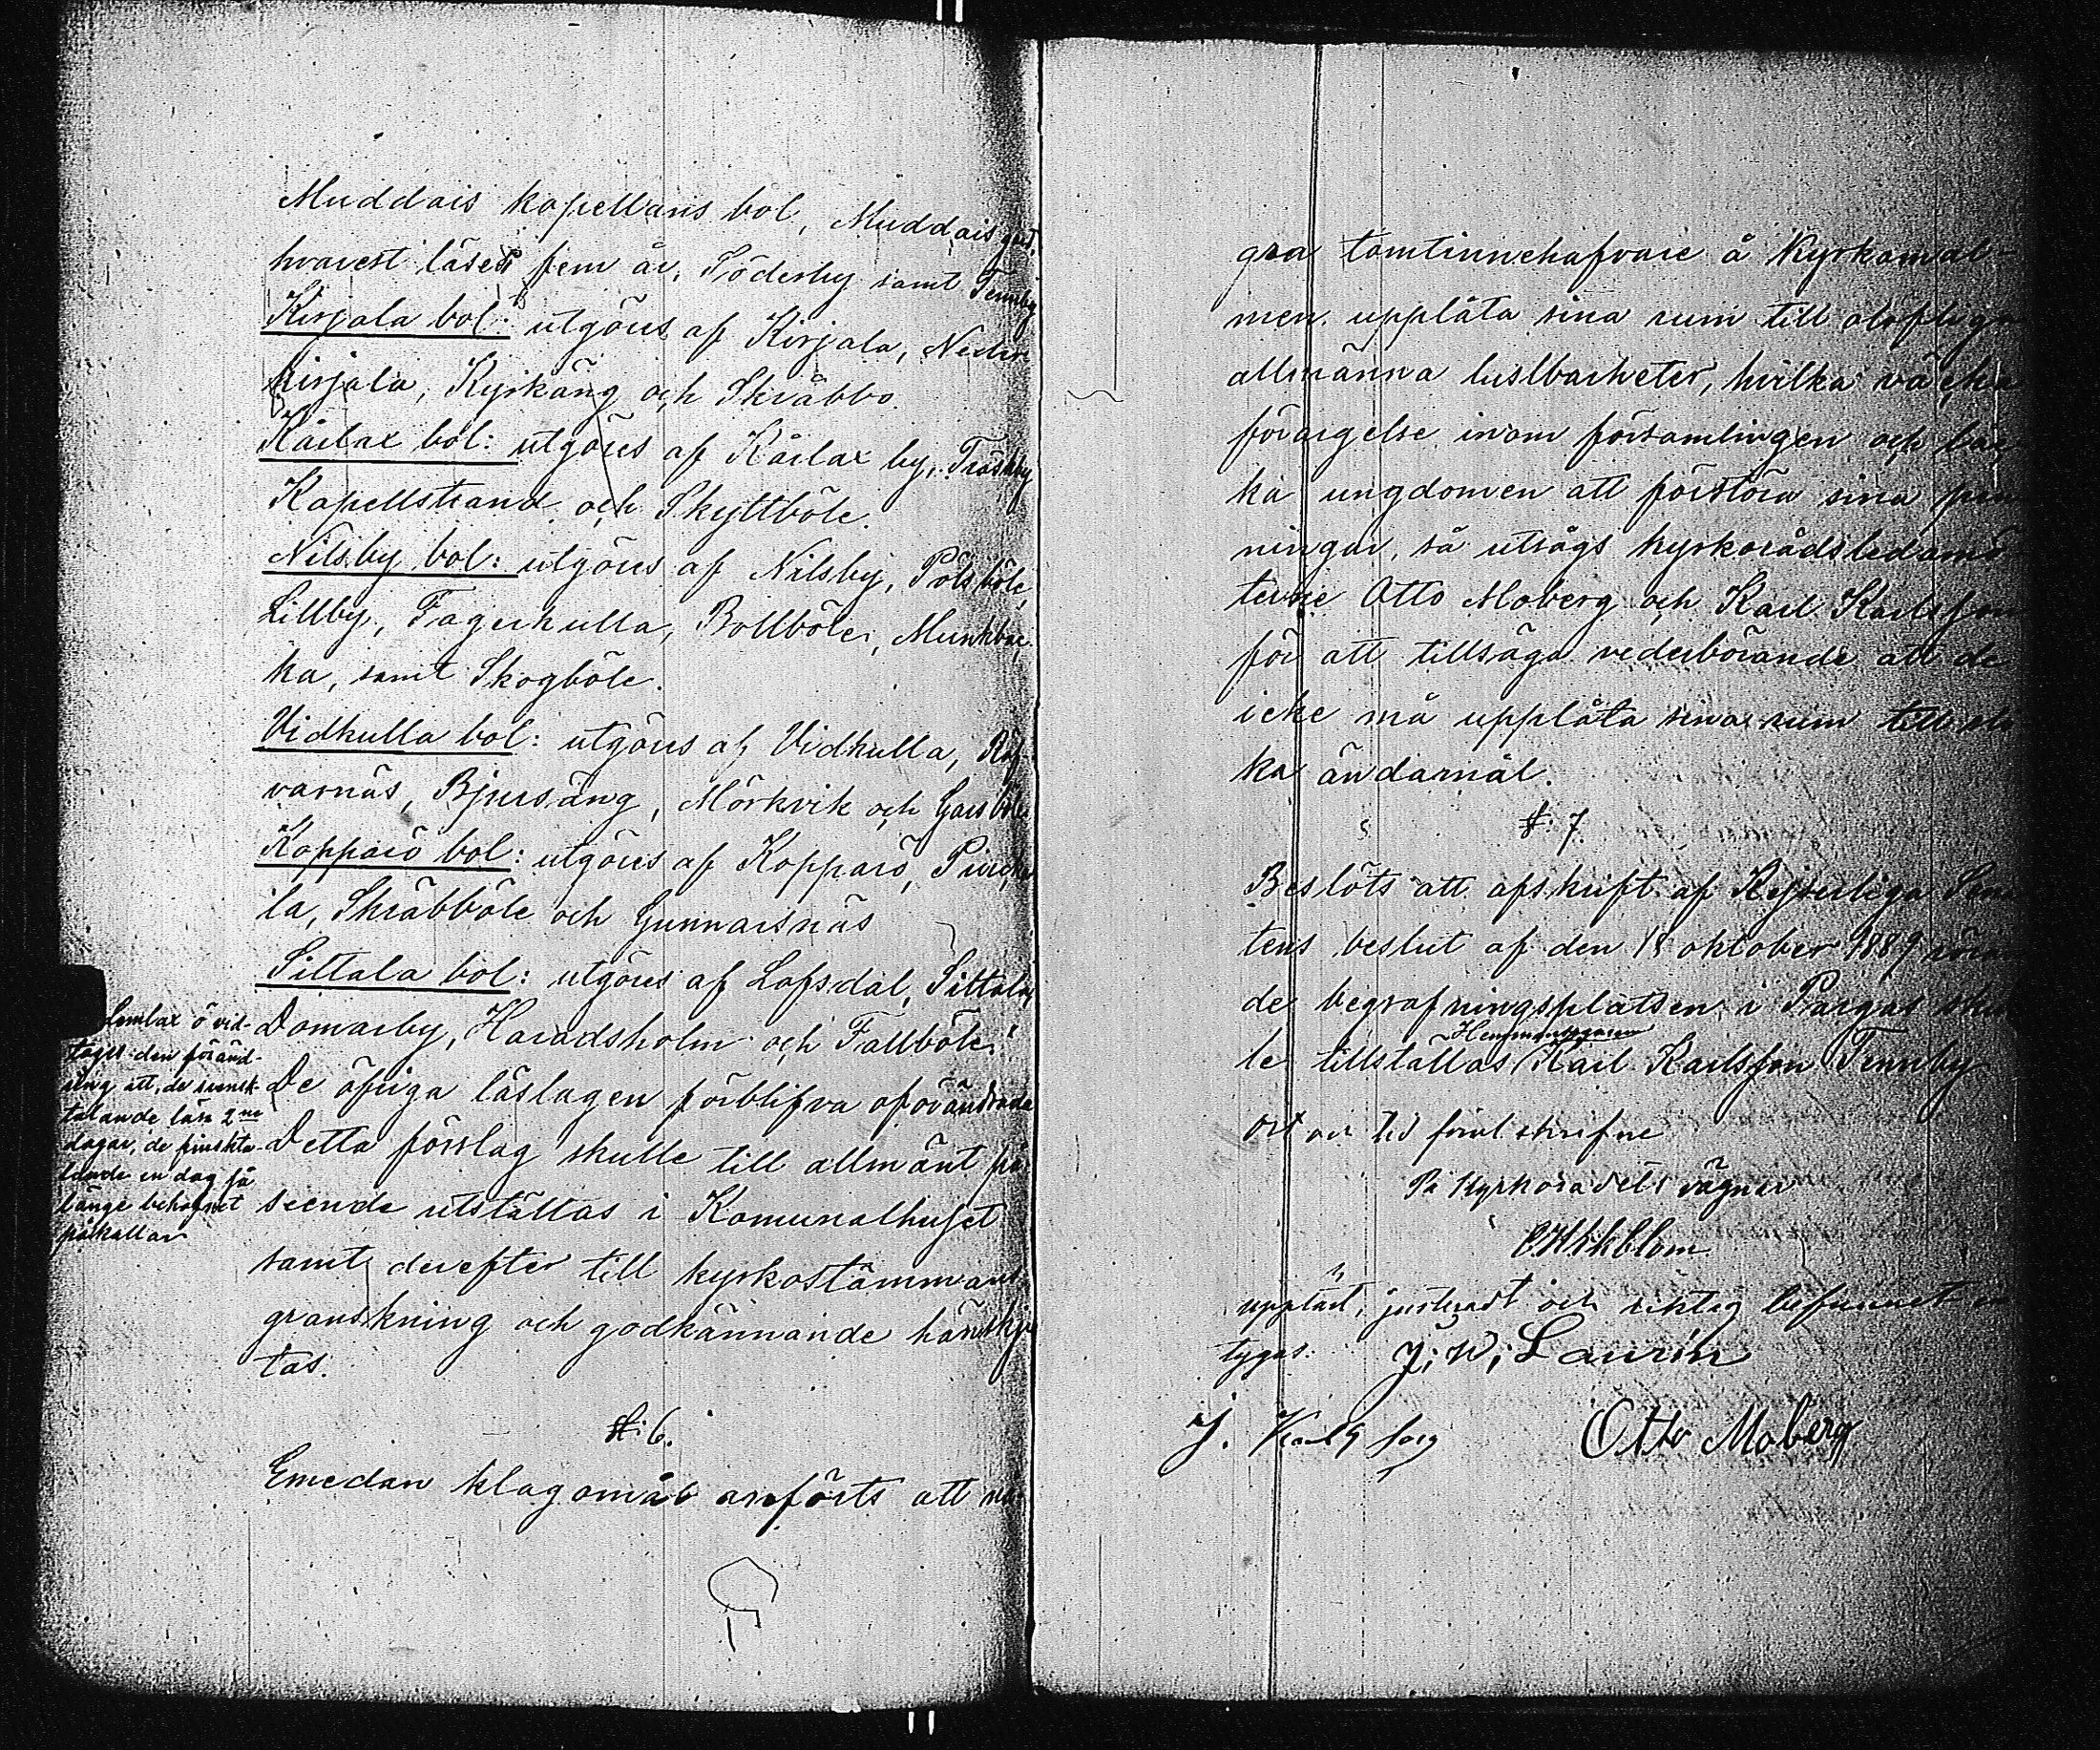 Muddais kapellans bol, Muddais gård,
hvarest läses fem år, Söderby samt Tennby
Kirjala bol: utgöres af Kirjala, Neder
kirjala, Kyrkäng och Skräbbo.
Kårlax bol: utgöres af Kårlax by, Träskby
Kapellstrand och Skyttböle.
Nilsby bol: utgöres af Nilsby, Pölsböle,
Lillby, Fagerkulla, Bollböle, Munkbac
ka, samt Skogböle.
Vidkulla bol: utgöres af Vidkulla, Räf
varnäs, Bjursäng, Mörkvik och Garsböle
Kopparö bol: utgöres af Kopparö, Piuck
ila, Skräbböle och Gunnarsnäs
Sittala bol: utgöres af Lofsdal, Sittala,
Domarby, Haradsholm och Fallböle.
De öfriga läslagen förblifva oförändrade
Detta förslag skulle till allmänt på
seende utställas i Komunalhuset
samt derefter till kyrkostämmans
granskning och godkännande hänskju
tas.
§. 6.
Emedan klagomål anförts att nå
Lemlax ö vid-
tages den föränd-
ring att de svensk-
talande läsa 2ne
dagar, de finskta-
lande en dag så
länge behofvet
påkallar
gra tomtinnehafvare å Kyrkomal-
men upplåta sina rum till olofliga
allmänna lustbarheter, hvilka väcka
förargelse inom församlingen och loc
ka ungdomen att förstöra sina pen
ningar, så utsågs kyrkorådsledamö
terne Otto Moberg och Karl Karlsson
för att tillsäga vederbörande att de
icke må upplåta sina rum till sli
ka ändamål.
§. 7.
Beslöts att afskrift af Kejserliga Sena
tens beslut af den 18 oktober 1889 röran
de begrafningsplatsen i Pargas skul
le tillställas Hemmansegaren Karl Karlsson Tennby
Ort och tid förut skrifne
På Kyrkorådets vägnar
O Wikblom
uppläst, justeradt och riktig befunnet be
tygas: J. W. Laurén
J. Karlsson Otto Moberg